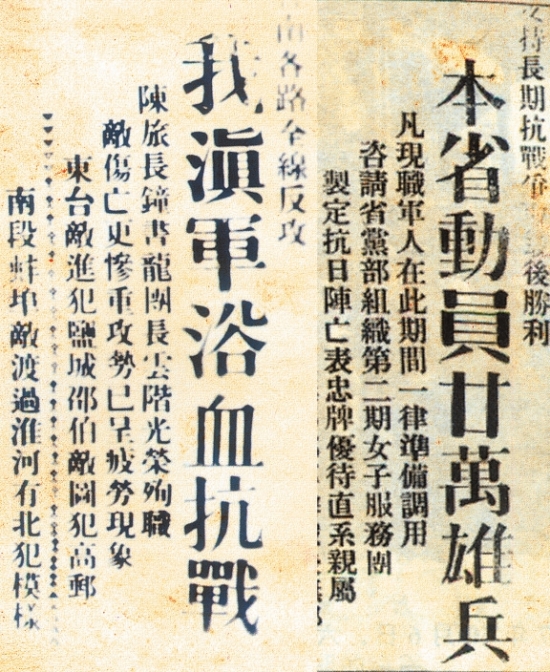 持長期抗戰爭 最後勝利
本省動員廿萬雄兵
凡現職軍人在此期間一律準備調用
咨請省黨部組織第二期女子服務團
製定抗日陣亡表忠牌優待直系親屬
各路全線反攻
我滇軍浴血抗戰
陳旅長鐘書龍團長雲階光榮殉職
敵傷亡更慘重攻勢已呈疲勞現象
東台敵進犯鹽城邵伯敵圖犯高郵
南段蚌埠敵渡過淮河有北犯模樣